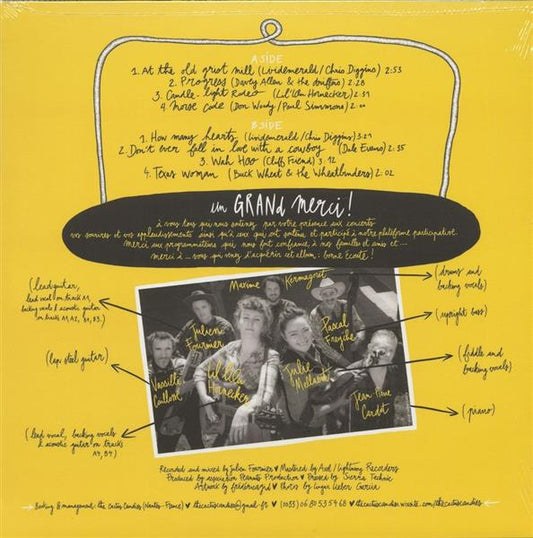 A SIDE
1. At the old grist mill (Lividemerald / Chris Diggins) 2:53
2. Progress (Davey Allen & the drifters) 2:28
3. Candle-light Rodeo (Lil'Lila Hornecker) 2:39
4. Morse Code (Don Woody / Paul Simmons) 2:00
B SIDE
1. How many hearts (Lividemerald / Chris Diggins) 3:27
2. Don't ever fall in love with a cowboy (Dale Evans) 2:35
3. Wah Hoo (Cliff Friend) 3:12
4. Texas woman (Buck Wheat & the Wheatbinders) 2:02
un GRANd merci!
à vous tous qui nous soutenez par votre présence aux concerts
vos sourires et vos applaudissements ainsi qu'à ceux qui ont soutenu et participé à notre plateforme participative.
Merci aux programmateurs qui nous font confiance, à nos familles et amis et...
merci à... vous qui venez d'acquérir cet album: bonne Écoute!
(lead guitar,
lead vocal on track A1,
backing vocals & acoustic guitar
on tracks A1, A2, B1, B3.)
Maxime
Kermagoret
(drums and
backing vocals)
Julien
Fournier
Pascal
Freyche
(upright bass)
(lap steel guitar)
Vassili
Caillosse
Lil'Lila
Hornecker
Julie
(fiddle and
backing vocals)
Jean
Cardot
(piano)
(lead vocal, backing vocals
& acoustic guitar on tracks
A4, B4)
Recorded and mixed by Julien Fournier ♥ Mastered by Axel / Lightning Recorders
Produced by association Peanuts Production ♥ Pressed by Sierra Technic
Artwork by ♥ Photos by Inger Kieber Garcia
Booking & management: the Cactus Candies (Nantes - France) ♥ thecactuscandies@gmail.fr ♥ (0033) 06 80 53 54 68 ♥ thecactuscandies.wixsite.com/thecactuscandies